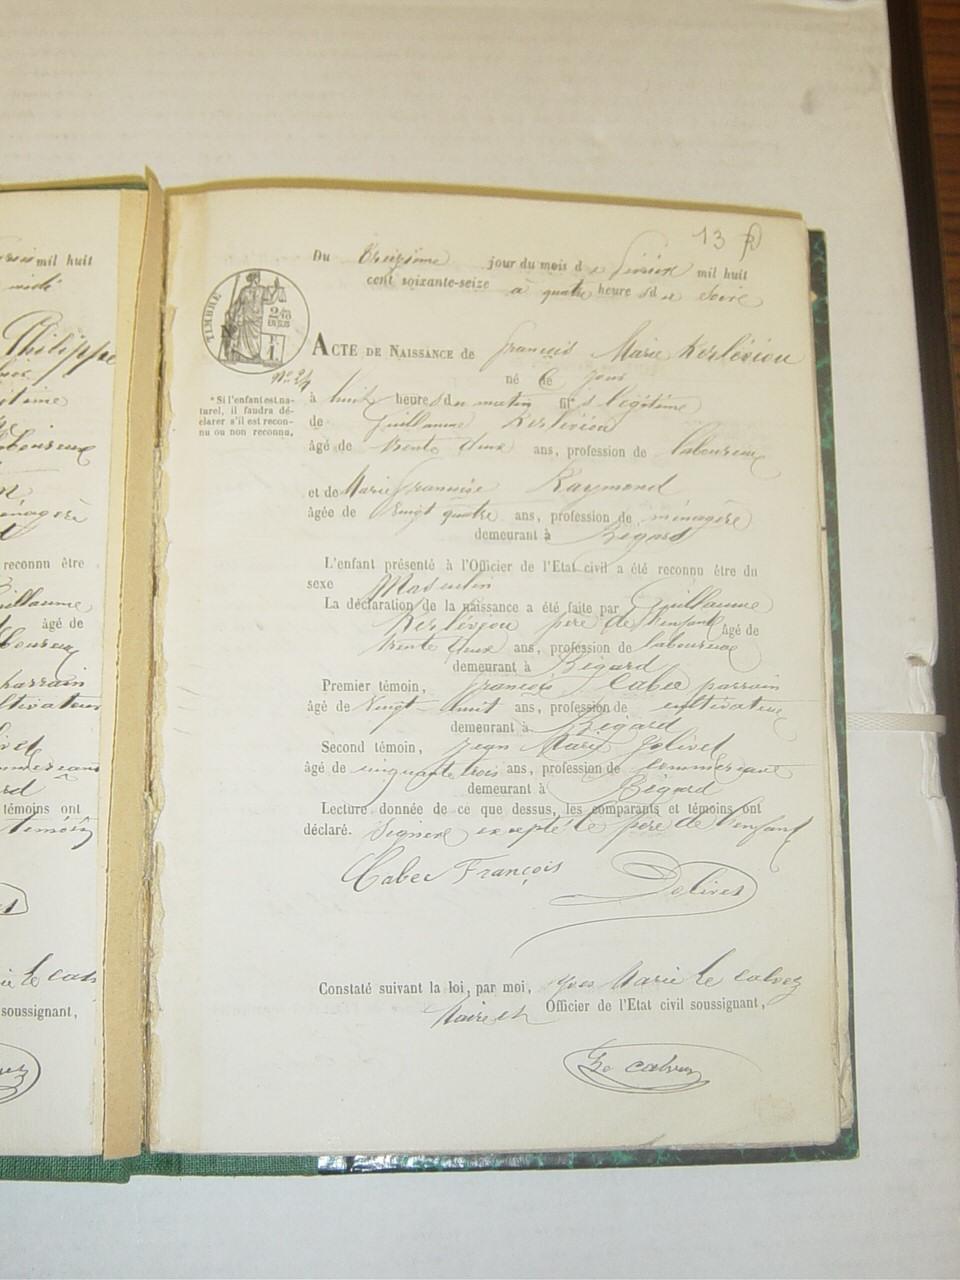 mil huit
Philippe
reconnu être
Guillaume
âgé de
parrain
cultivateur
témoins ont
témoin
Le cal
soussignant,
13
Du treizième jour du mois de Février mil huit
cent soixante-seize à quatre heures du soir
TIMBRE
N° 24
ACTE DE NAISSANCE de François Marie Kerlévéou
né ce jour
à huit heures du matin fils légitime
*Si l'enfant est na-
turel, il faudra dé-
clarer s'il est recon-
nu ou non reconnu.
de Guillaume Kerlévéou
âgé de trente deux ans, profession de laboureur
et de Marie Françoise Raymond
âgée de vingt quatre ans, profession de ménagère
demeurant à Bégard
L'enfant présenté à l'Officier de l'Etat civil a été reconnu être du
sexe Masculin
La déclaration de la naissance a été faite par Guillaume
Kerlévéou père de l'enfant âgé de
trente deux ans, profession de laboureur
demeurant à Bégard
Premier témoin, François Cabec parrain
âgé de vingt-huit ans, profession de cultivateur
demeurant à Bégard
Second témoin, Jean Marie Jolivet
âgé de cinquante trois ans, profession de commerçant
demeurant à Bégard
Lecture donnée de ce que dessus, les comparants et témoins ont
déclaré. Signer excepté le père de l'enfant
Cabec François Jolivet
Constaté suivant la loi, par moi, Yves Marie Le calvez
Maire et Officier de l'Etat civil soussignant,
Le calvez